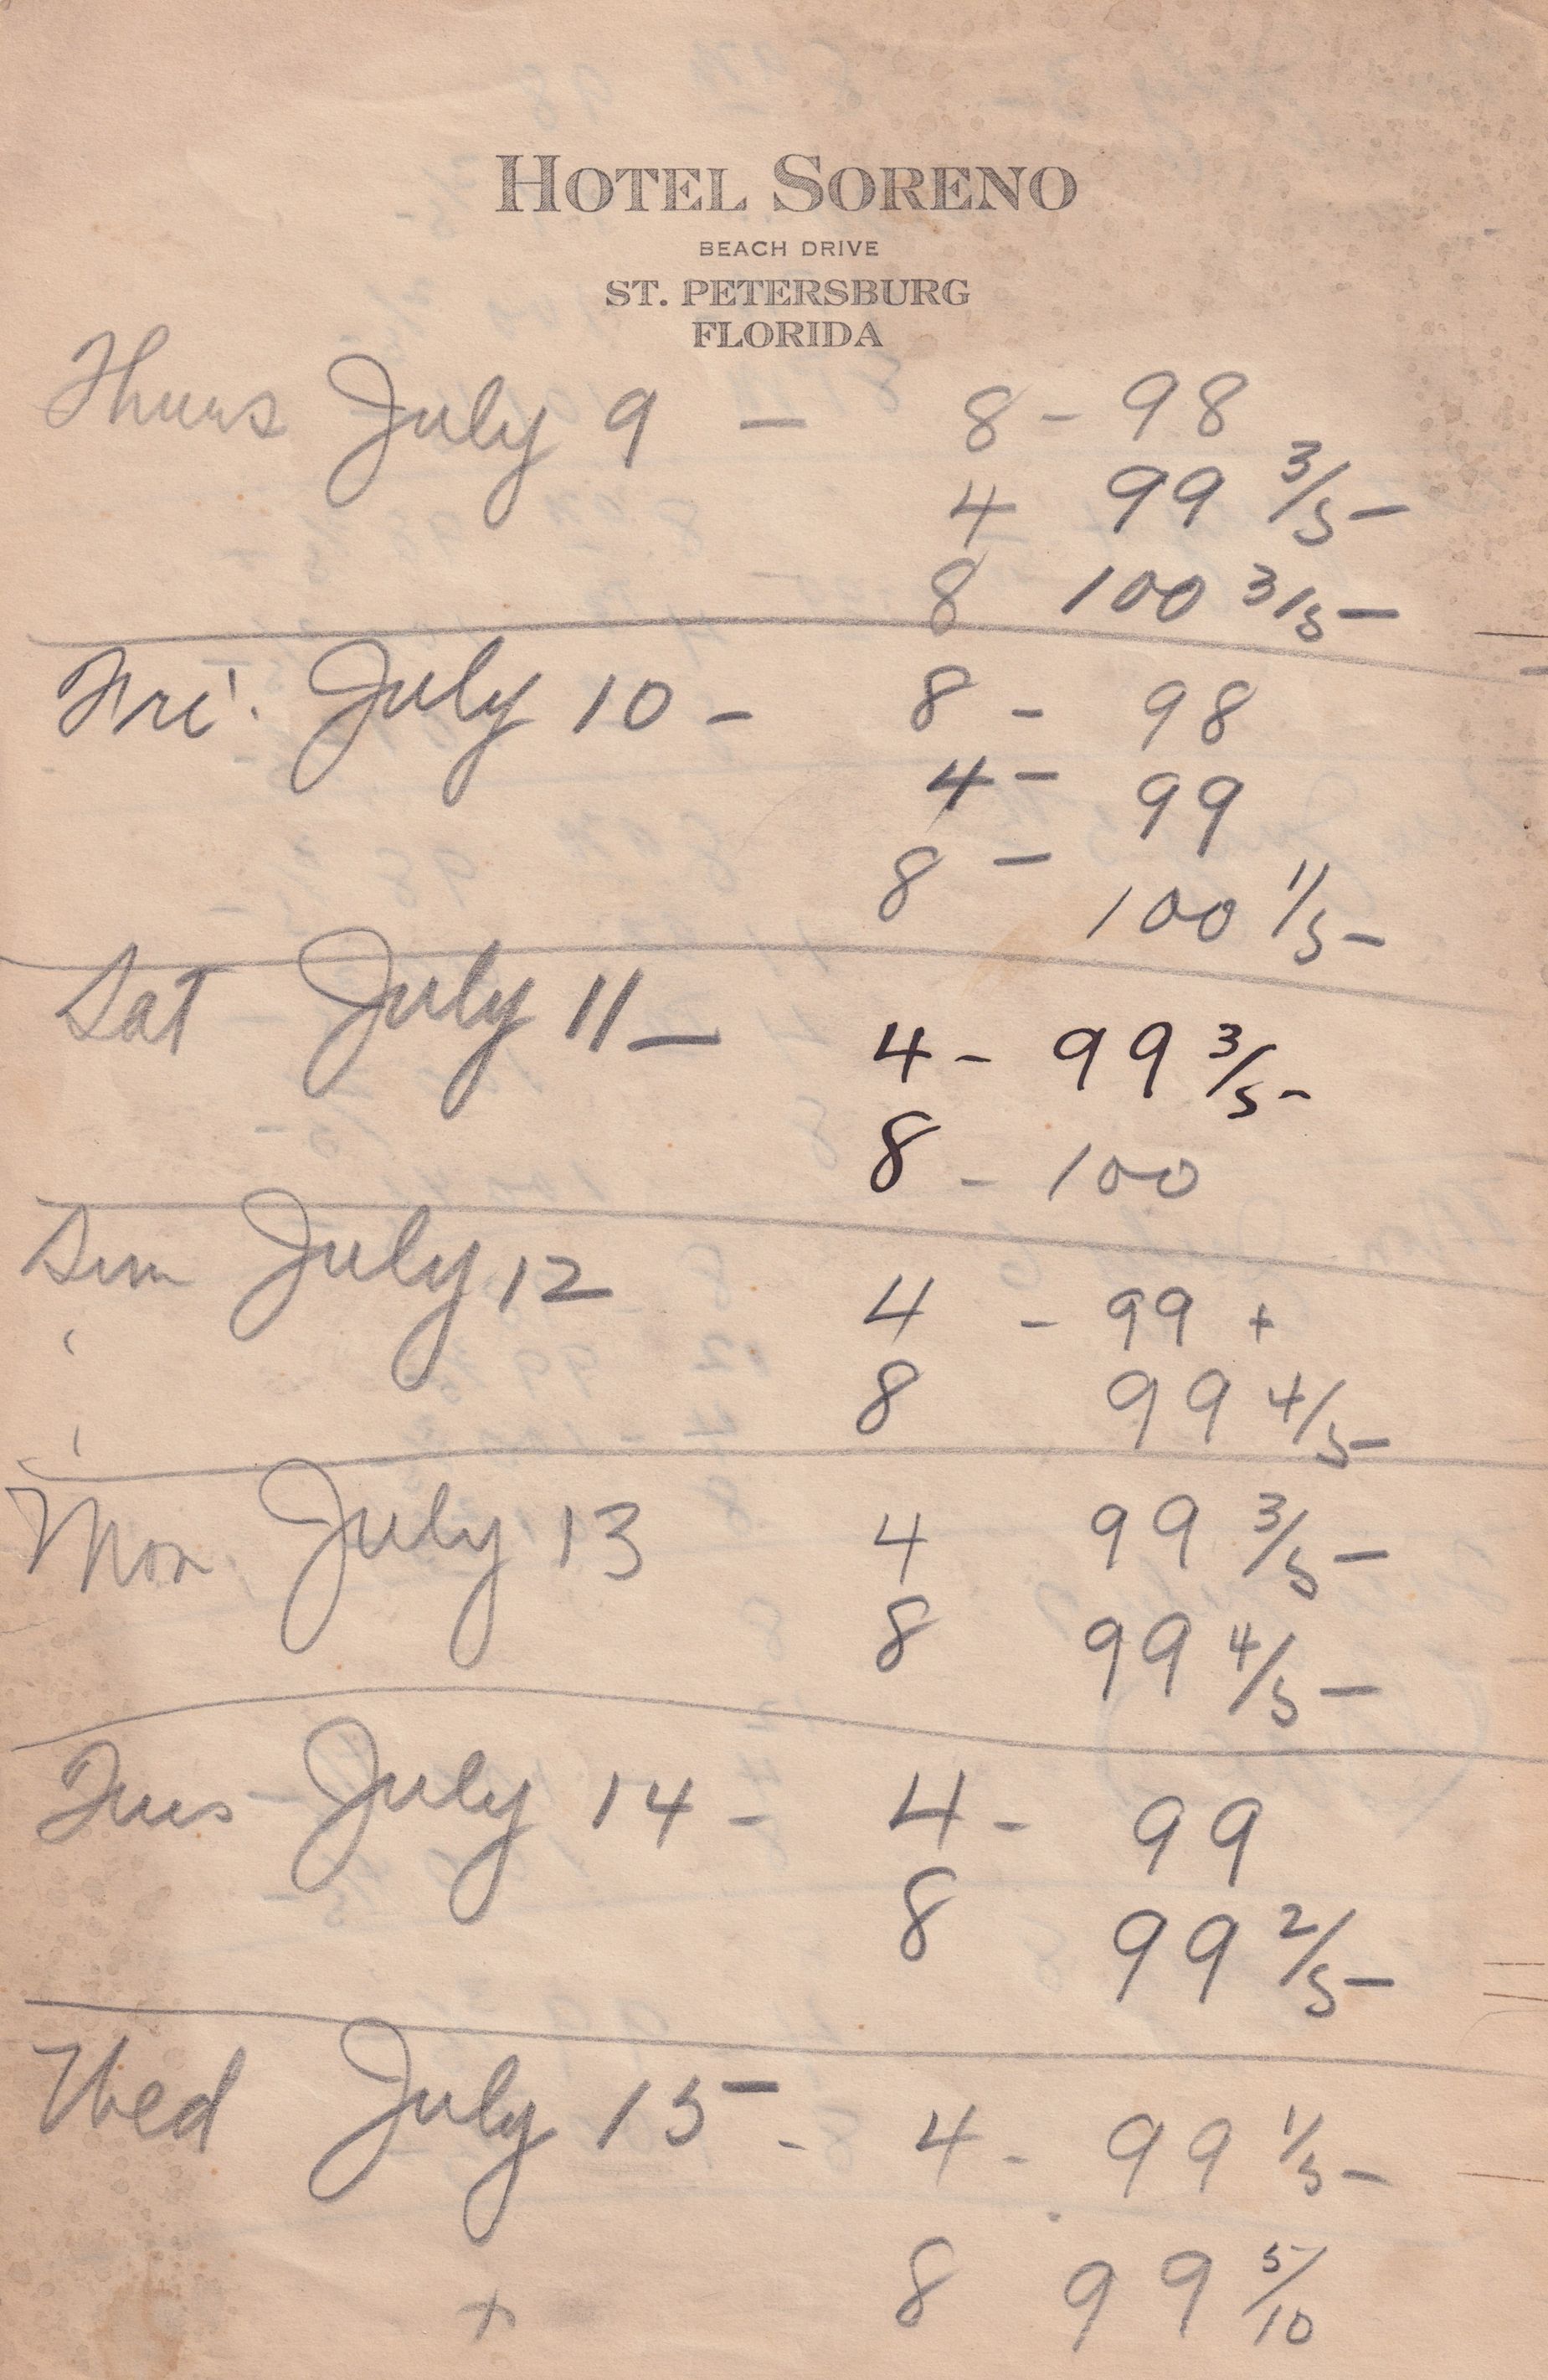 HOTEL SORENO
BEACH DRIVE
ST. PETERSBURG
FLORIDA
Thurs July 9 - 8 - 98
4 99 3/5-
8 100 3/5-
Fri. July 10 - 8 - 98
4 - 99
8 - 100 1/5-
Sat July 11 - 4 - 99 3/5-
8 - 100
Sun July 12 4 - 99 +
8 99 4/5-
Mon. July 13 4 99 3/5-
8 99 4/5-
Tues - July 14 - 4 - 99
8 99 2/5-
Wed July 15 - 4 - 99 1/5-
+ 8 99 5/10